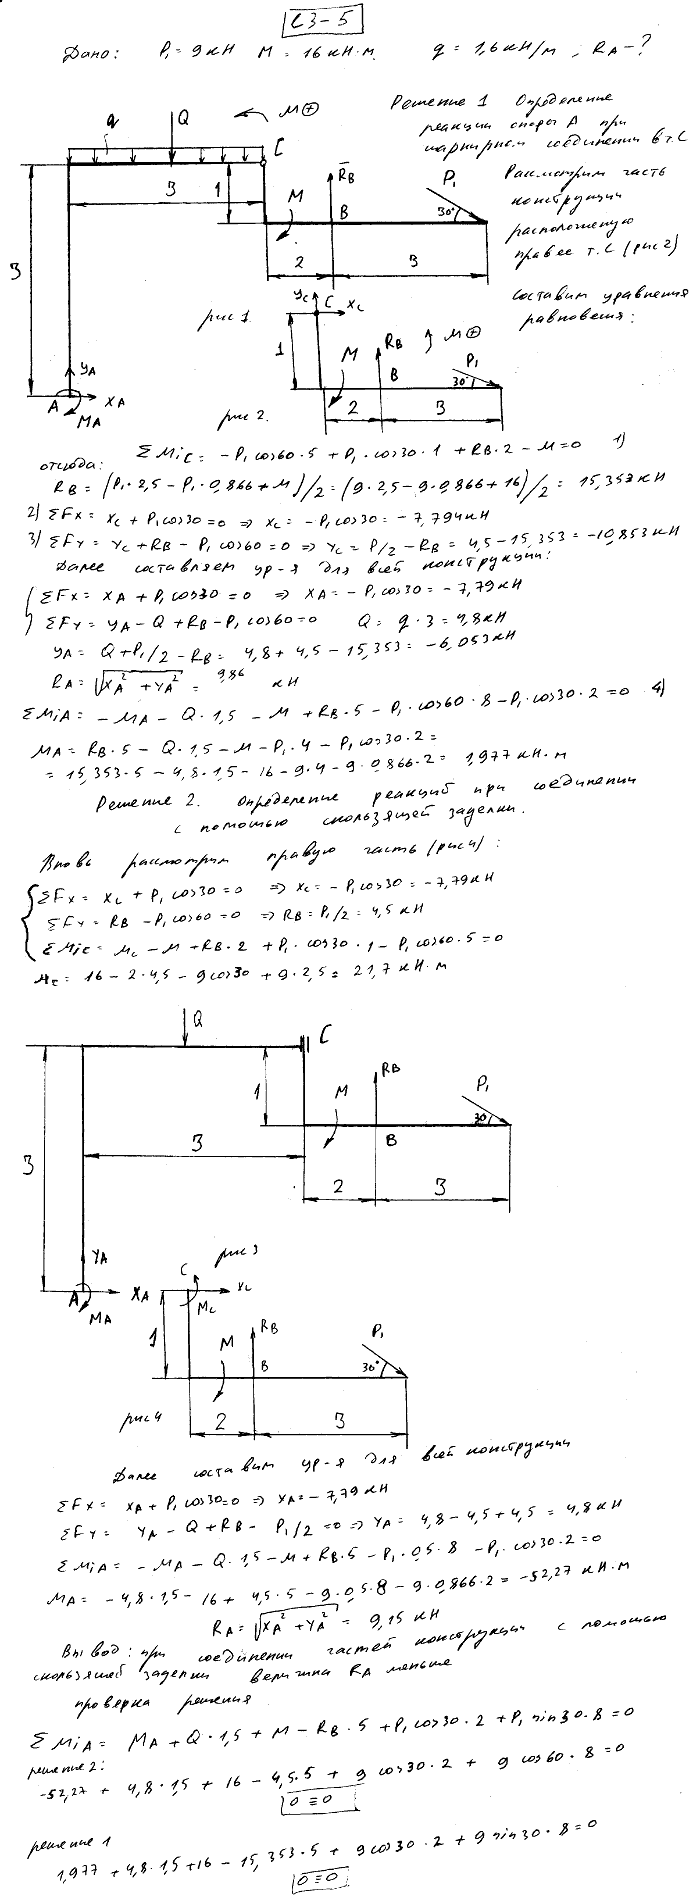 С3-5
Дано: P₁ = 9 кН M = 16 кН·м. q = 1,6 кН/м, RA - ?
Решение 1 Определение
реакции опоры A при
шарнирном соединении в т.C
Рассмотрим часть
конструкции
расположеную
правее т.C (рис 2)
составим уравнения
равновесия:
q
Q
M⊕
C
3
1
M
R̄B
B
P₁
30°
2
3
3
YA
A
XA
MA
рис 1.
YC
C
XC
1
M
RB
M⊕
B
P₁
30°
2
3
рис 2.
ΣMiC = -P₁ cos60·5 + P₁·cos30·1 + RB·2 - M = 0 1)
отсюда:
RB = (P₁·2,5 - P₁·0,866 + M)/2 = (9·2,5 - 9·0,866 + 16)/2 = 15,353 кН
2) ΣFx = XC + P₁cos30 = 0 ⇒ XC = -P₁cos30 = -7,794 кН
3) ΣFy = YC + RB - P₁ cos60 = 0 ⇒ YC = P/2 - RB = 4,5 - 15,353 = -10,853 кН
Далее составляем ур-я для всей конструкции:
ΣFx = XA + P₁ cos30 = 0 ⇒ XA = -P₁cos30 = -7,79 кН
ΣFy = YA - Q + RB - P₁ cos60 = 0 Q = q·3 = 4,8 кН
YA = Q + P₁/2 - RB = 4,8 + 4,5 - 15,353 = -6,053 кН
RA = √XA² + YA² = 9,86 кН
ΣMiA = -MA - Q·1,5 - M + RB·5 - P₁·cos60·8 - P₁·cos30·2 = 0 4)
MA = RB·5 - Q·1,5 - M - P₁·4 - P₁cos30·2 =
= 15,353·5 - 4,8·1,5 - 16 - 9·4 - 9·0,866·2 = 1,977 кН·м
Решение 2. Определение реакций при соединении
с помощью скользящей заделки.
Вновь рассмотрим правую часть (рис 4):
ΣFx = XC + P₁ cos30 = 0 ⇒ XC = -P₁cos30 = -7,79 кН
ΣFy = RB - P₁cos60 = 0 ⇒ RB = P₁/2 = 4,5 кН
ΣMiC = MC - M + RB·2 + P₁·cos30·1 - P₁cos60·5 = 0
MC = 16 - 2·4,5 - 9cos30 + 9·2,5 = 21,7 кН·м
Q
C
1
M
RB
P₁
30
B
3
3
2
3
YA
A
XA
MA
рис 3
C
XC
MC
1
M
RB
B
P₁
30°
2
3
рис 4
Далее составим ур-я для всей конструкции
ΣFx = XA + P₁cos30 = 0 ⇒ XA = -7,79 кН
ΣFy = YA - Q + RB - P₁/2 = 0 ⇒ YA = 4,8 - 4,5 + 4,5 = 4,8 кН
ΣMiA = -MA - Q·1,5 - M + RB·5 - P₁·0,5·8 - P₁·cos30·2 = 0
MA = -4,8·1,5 - 16 + 4,5·5 - 9·0,5·8 - 9·0,866·2 = -52,27 кН·м
RA = √XA² + YA² = 9,15 кН
Вывод: при соединении частей конструкции с помощью
скользящей заделки величина RA меньше
проверка решения
ΣMiA = MA + Q·1,5 + M - RB·5 + P₁cos30·2 + P₁sin30·8 = 0
решение 2:
-52,27 + 4,8·1,5 + 16 - 4,5·5 + 9 cos30·2 + 9 cos60·8 = 0
0 ≡ 0
решение 1
1,977 + 4,8·1,5 + 16 - 15,353·5 + 9cos30·2 + 9sin30·8 = 0
0 ≡ 0